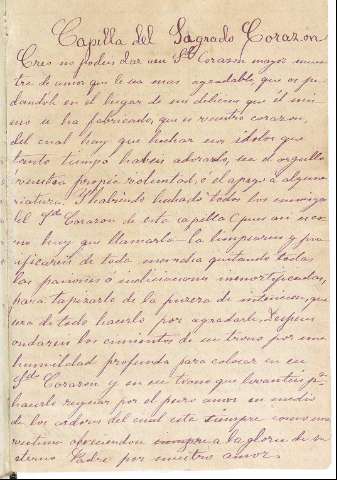 Capilla del Sagrado Corazon
Creo no podeis dar a su Sdo Corazon mayor mues
tra de amor que le sea mas agradable que os
dandole en el lugar de sus delicias que él mis
mo se ha fabricado, que es vuestro corazon,
del cual hay que hechar los idolos que
tanto tiempo habeis adorado, sea el orgullo
vuestra propia voluntad, ó el apego á alguna
criatura. Y habiendo hechado todos los enemigos
del Sdo Corazon de esta capilla (pues asi es co
mo hay que llamarla) la limpiareis y pu
rificareis de toda inmundia quitando todas
las pasiones ó inclinaciones inmortificadas,
para taparle de la pureza de intencion, que
sea de todo hacerlo por agradarle. Despues
ondareis los cimientos de un trono por una
humildad profunda para colocar en el
Sdo Corazon y en su trono que levanteis pa
hacerlo reynar por el puro amor en medio
de los ardores del cual este siempre como una
victima ofreciendose siempre a la gloria de su
eterno Padre por nuestro amor.